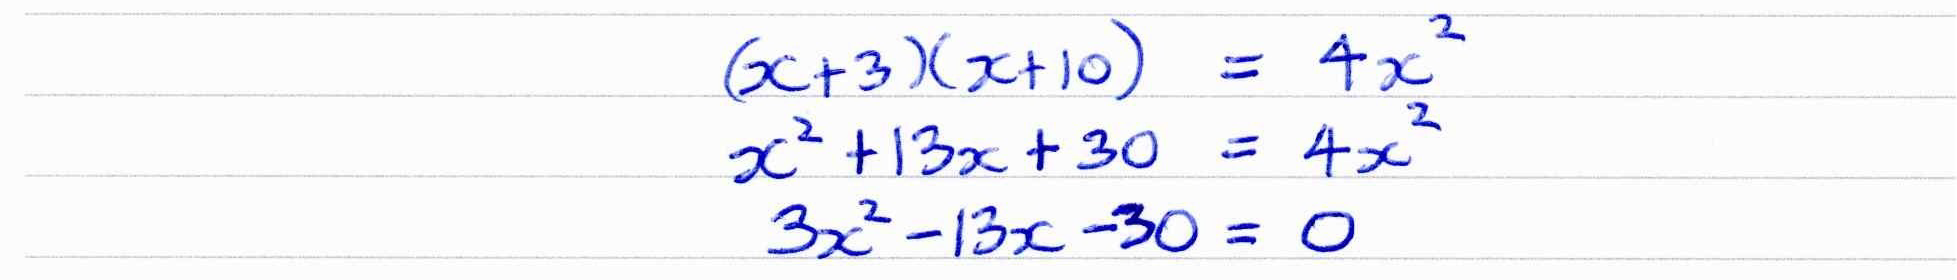 (x+3)(x+10) = 4x²
x² +13x + 30 = 4x²
3x² -13x -30 = 0